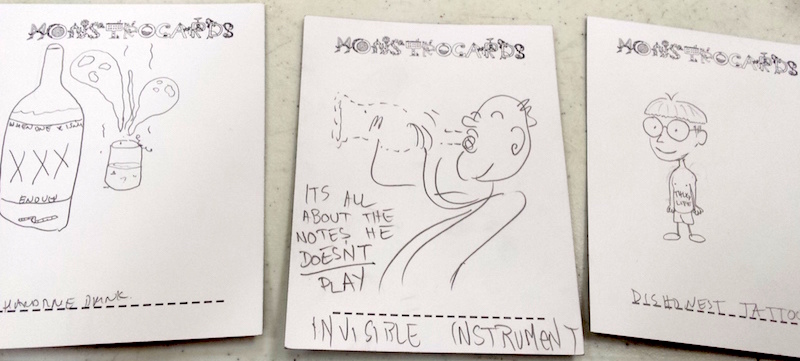 MONSTROCARDS
XXX
ENOUGH
MONSTROCARDS
ITS ALL
ABOUT THE
NOTES HE
DOESN'T
PLAY
INVISIBLE INSTRUMENT
MONSTROCARDS
THUG
LIFE
DISHONEST TATTOO